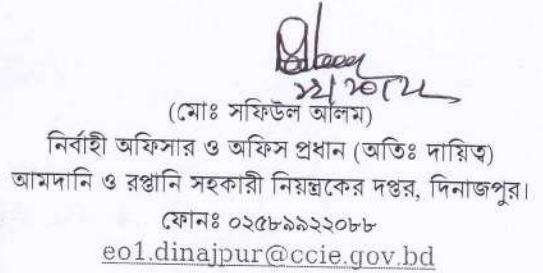 (মোঃ সফিউল আলম)
নির্বাহী অফিসার ও অফিস প্রধান (অতিঃ দায়িত্ব)
আমদানি ও রপ্তানি সহকারী নিয়ন্ত্রকের দপ্তর, দিনাজপুর।
ফোনঃ ০২৫৮৯৯২২০৮৮
eo1.dinajpur@ccie.gov.bd